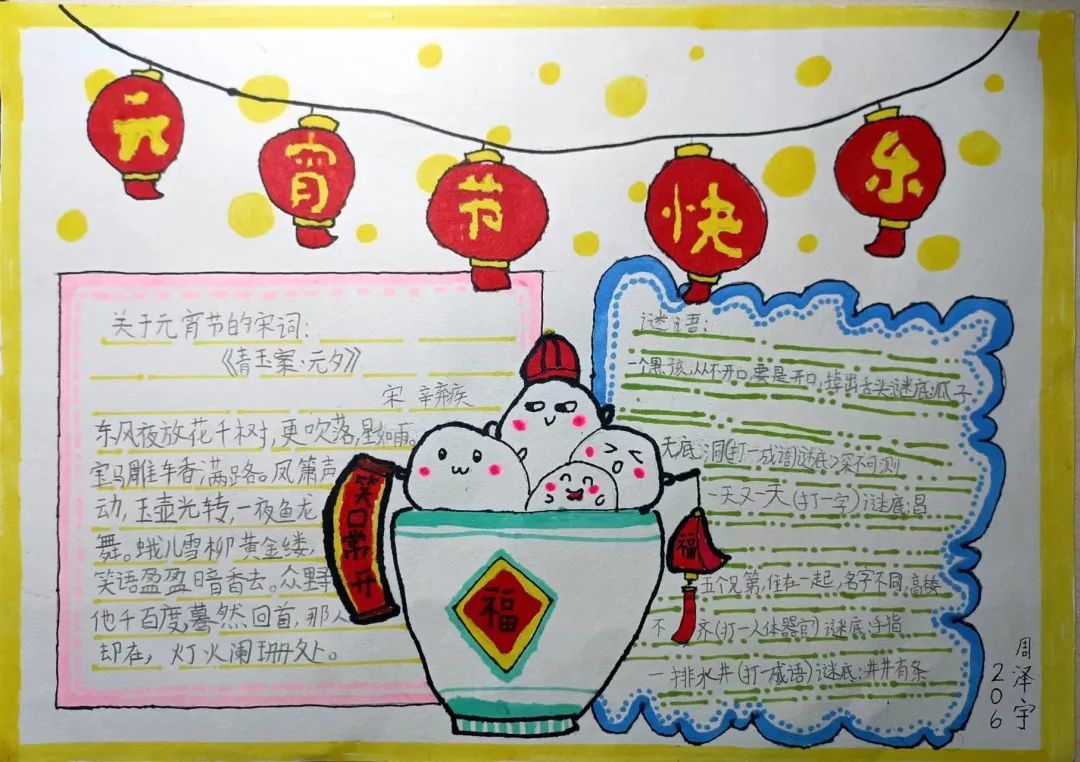 元宵节快乐
关于元宵节的宋词:
《青玉案·元夕》
宋 辛弃疾
东风夜放花千树,更吹落,星如雨。
宝马雕车香满路。凤箫声
动,玉壶光转,一夜鱼龙
舞。蛾儿雪柳黄金缕,
笑语盈盈暗香去。众里寻
他千百度,蓦然回首,那人
却在,灯火阑珊处。
笑口常开
福
福
谜语:
一个黑孩,从不开口,要是开口,掉出舌头谜底:瓜子
无底洞(打一成语)谜底:深不可测
一天又一天(打一字)谜底:昌
五个兄弟,住在一起,名字不同,高矮
不齐(打一人体器官)谜底:手指
一排水井(打一成语)谜底:井井有条
周泽宇
206